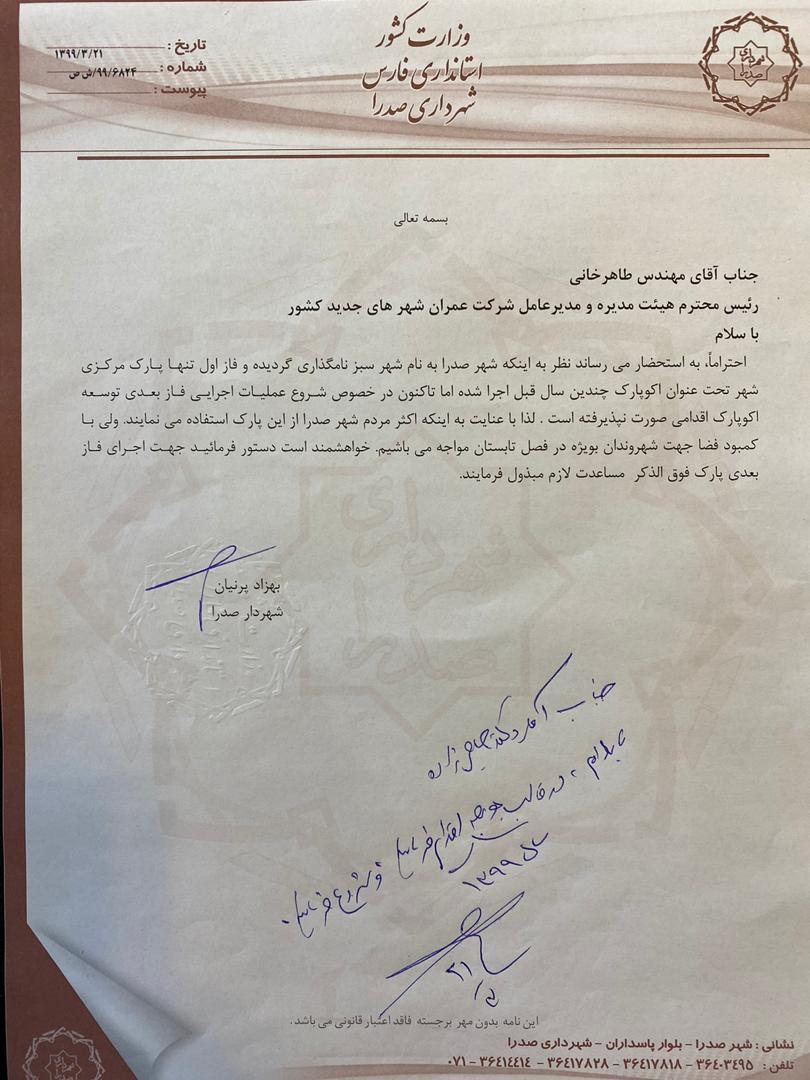 وزارت کشور
استانداری فارس
شهرداری صدرا
تاریخ : ۱۳۹۹/۳/۲۱
شماره : ۹۹/۶۸۲۴/ش ص
پیوست :
شهرداری صدرا
بسمه تعالی
جناب آقای مهندس طاهرخانی
رئیس محترم هیئت مدیره و مدیرعامل شرکت عمران شهر های جدید کشور
با سلام
احتراماً، به استحضار می رساند نظر به اینکه شهر صدرا به نام شهر سبز نامگذاری گردیده و فاز اول تنها پارک مرکزی
شهر تحت عنوان اکوپارک چندین سال قبل اجرا شده اما تاکنون در خصوص شروع عملیات اجرایی فاز بعدی توسعه
اکوپارک اقدامی صورت نپذیرفته است . لذا با عنایت به اینکه اکثر مردم شهر صدرا از این پارک استفاده می نمایند. ولی با
کمبود فضا جهت شهروندان بویژه در فصل تابستان مواجه می باشیم. خواهشمند است دستور فرمائید جهت اجرای فاز
بعدی پارک فوق الذکر مساعدت لازم مبذول فرمایند.
بهزاد پرنیان
شهردار صدرا
جناب آقای دکتر
با سلام، در قالب بودجه اقدام فرمایید و شروع فرمایید.
سال ۱۳۹۹
این نامه بدون مهر برجسته فاقد اعتبار قانونی می باشد.
نشانی : شهر صدرا - بلوار پاسداران - شهرداری صدرا
تلفن : ۳۶۴۰۳۴۹۵ - ۳۶۴۱۷۸۱۸ - ۳۶۴۱۷۸۲۸ - ۳۶۴۱۴۴۱۴ - ۰۷۱